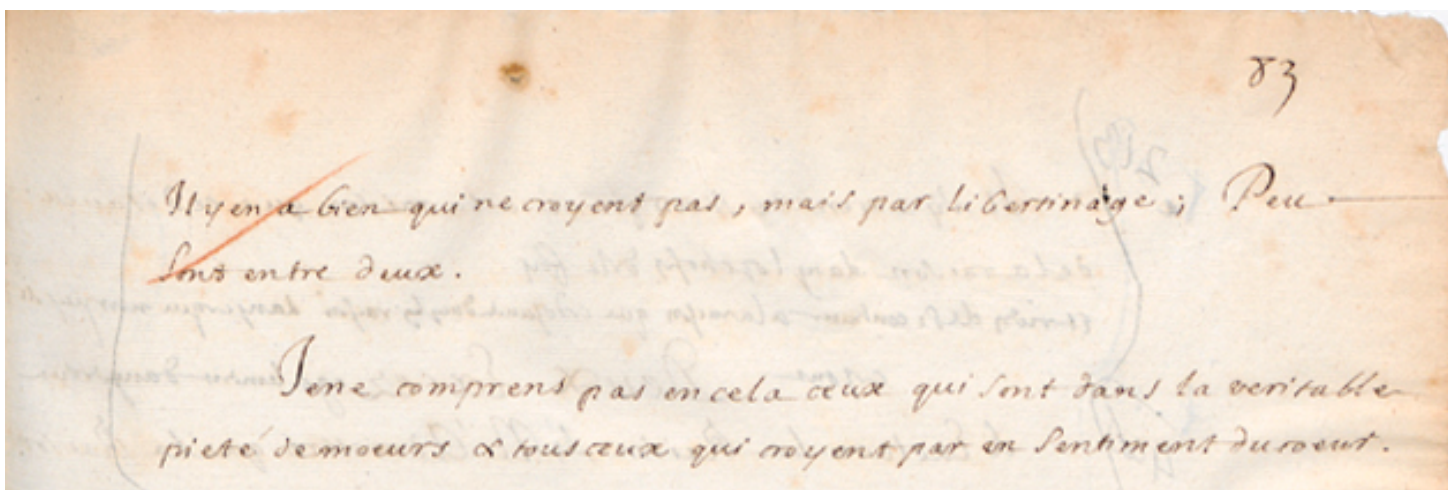 83
Il y en a bien qui ne croyent pas, mais par libertinage; Peu
sont entre deux.
Je ne comprens pas en cela ceux qui sont dans la veritable
pieté de moeurs & tous ceux qui croyent par en sentiment du coeur.